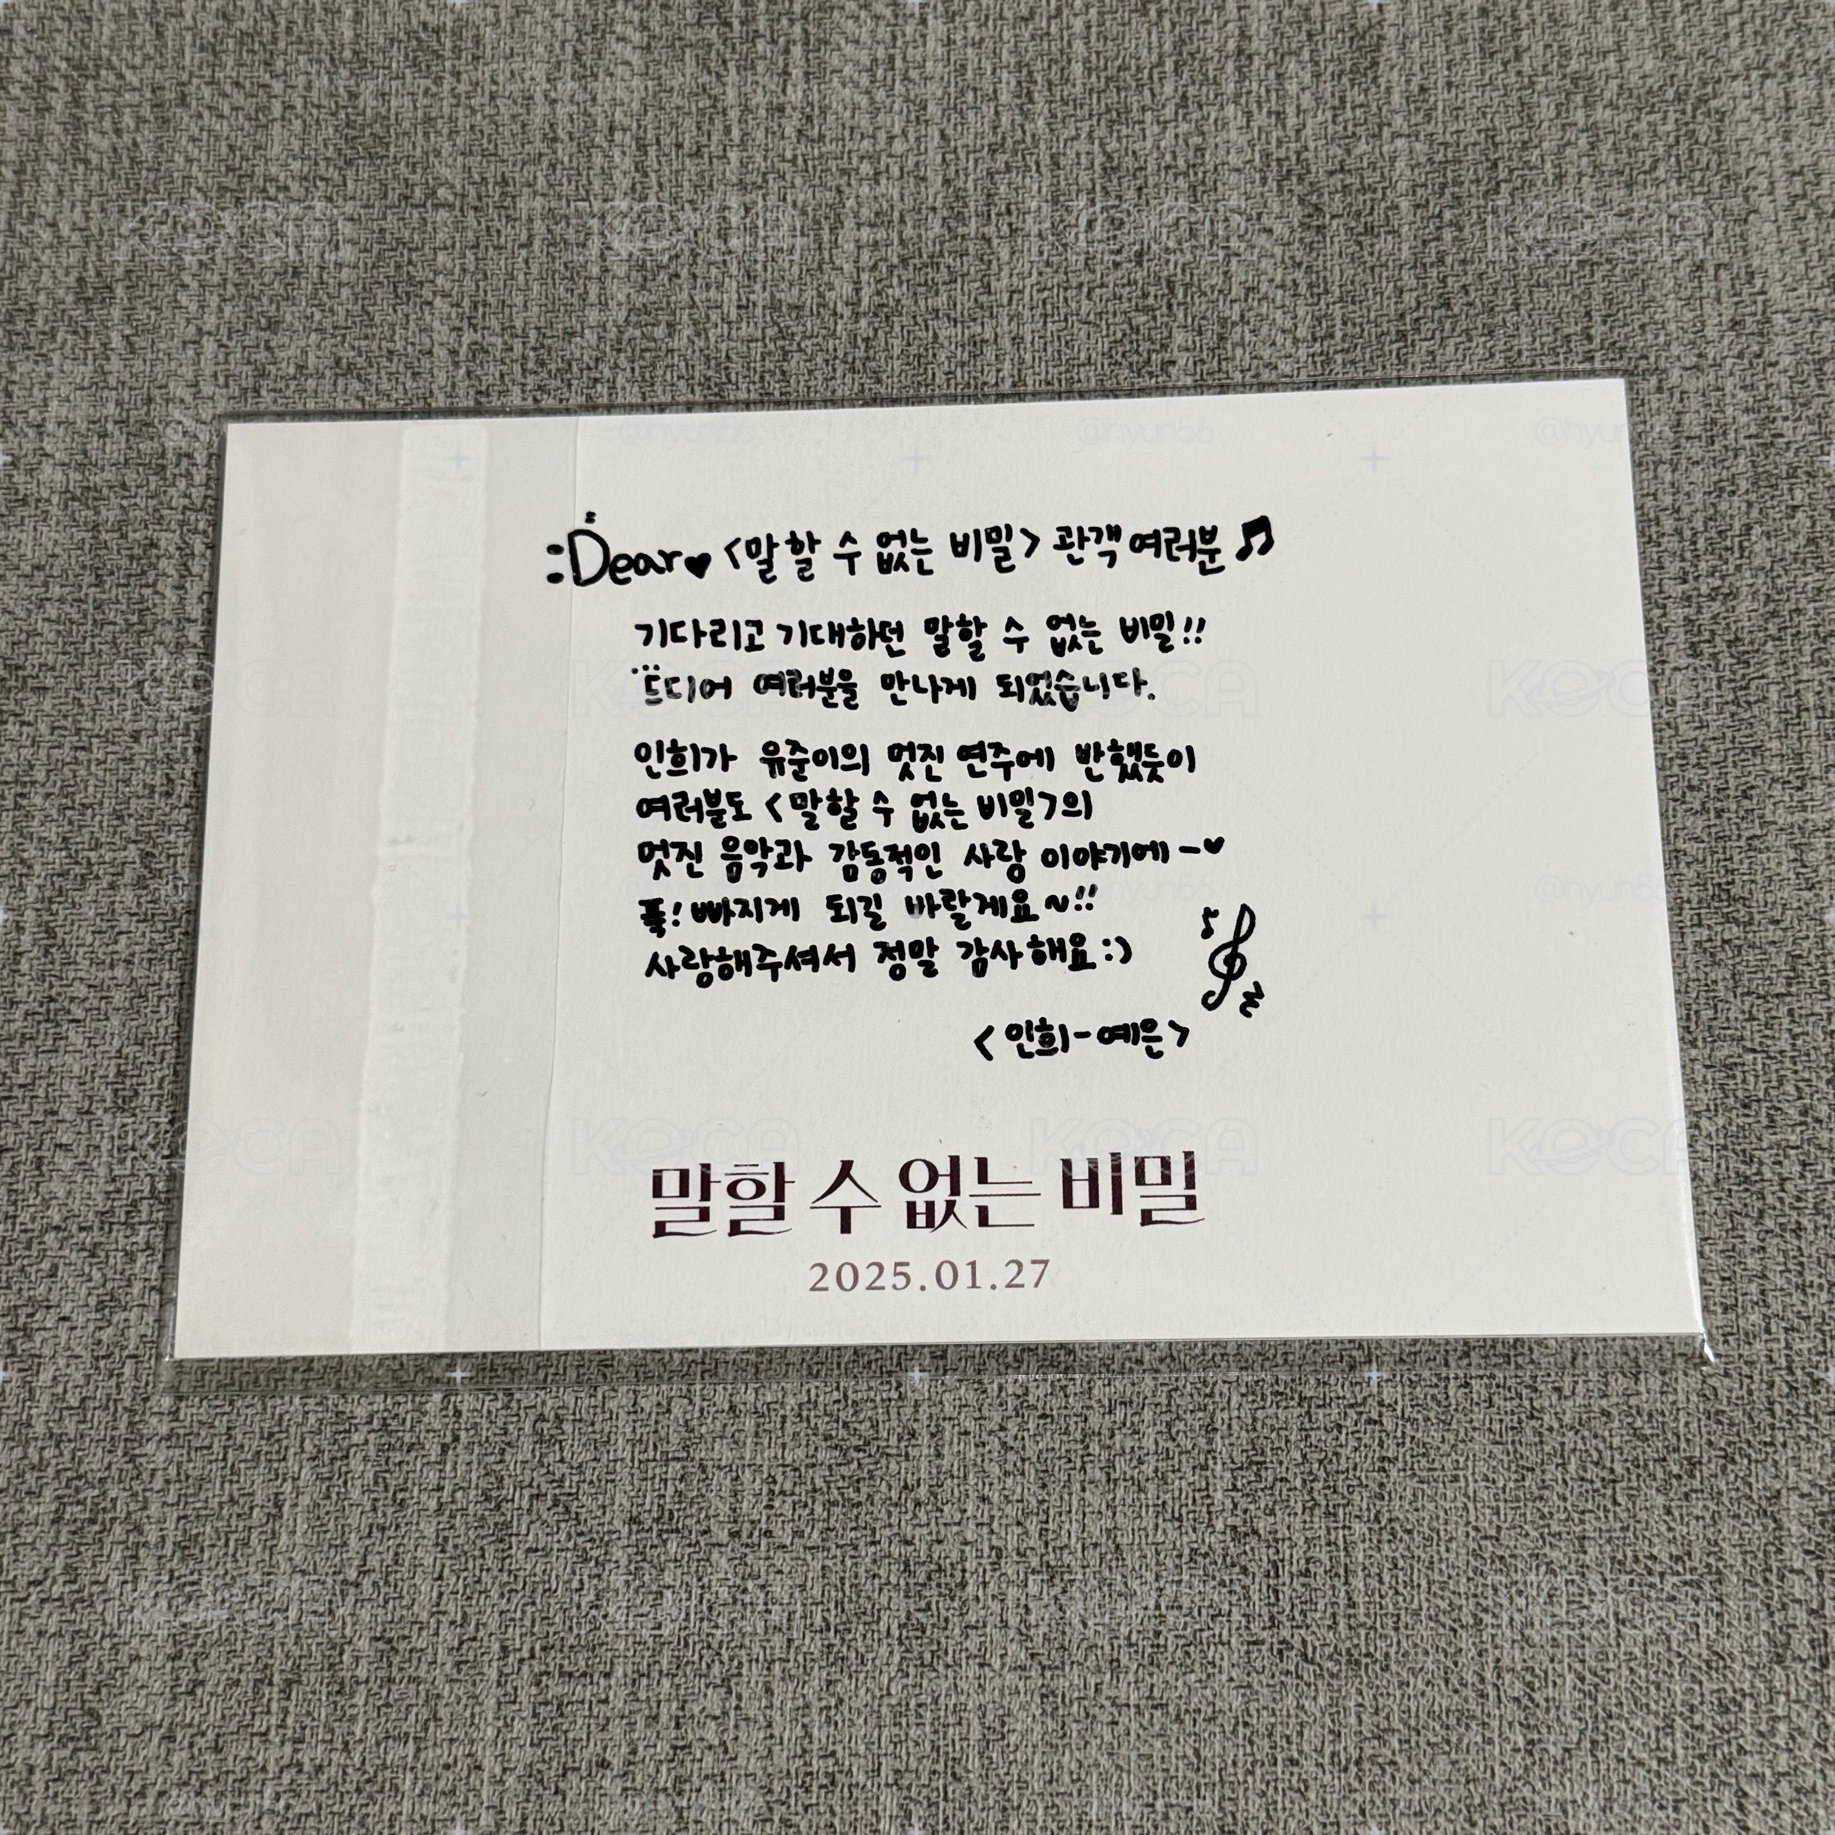 :Dear♥ <말할 수 없는 비밀> 관객 여러분♫
기다리고 기대하던 말할 수 없는 비밀!!
드디어 여러분을 만나게 되었습니다.
인희가 유준이의 멋진 연주에 반했듯이
여러분도 <말할 수 없는 비밀>의
멋진 음악과 감동적인 사랑 이야기에-♥
푹! 빠지게 되길 바랄게요~!!
사랑해주셔서 정말 감사해요:)
<인희-예은>
말할 수 없는 비밀
2025.01.27
KOCA
@hyun56